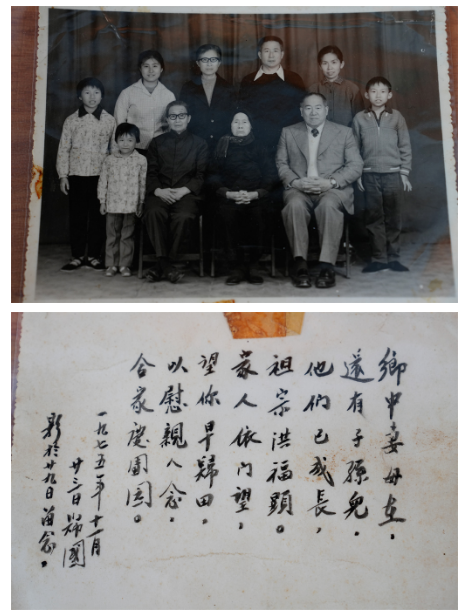 鄉中妻母在，
還有子孫兒，
他們已成長，
祖宗洪福顯。
家人依門望，
望你早歸田，
以慰親人念，
合家慶團圓。
一九七五年十一月
廿三日歸國
影於廿九日留念，